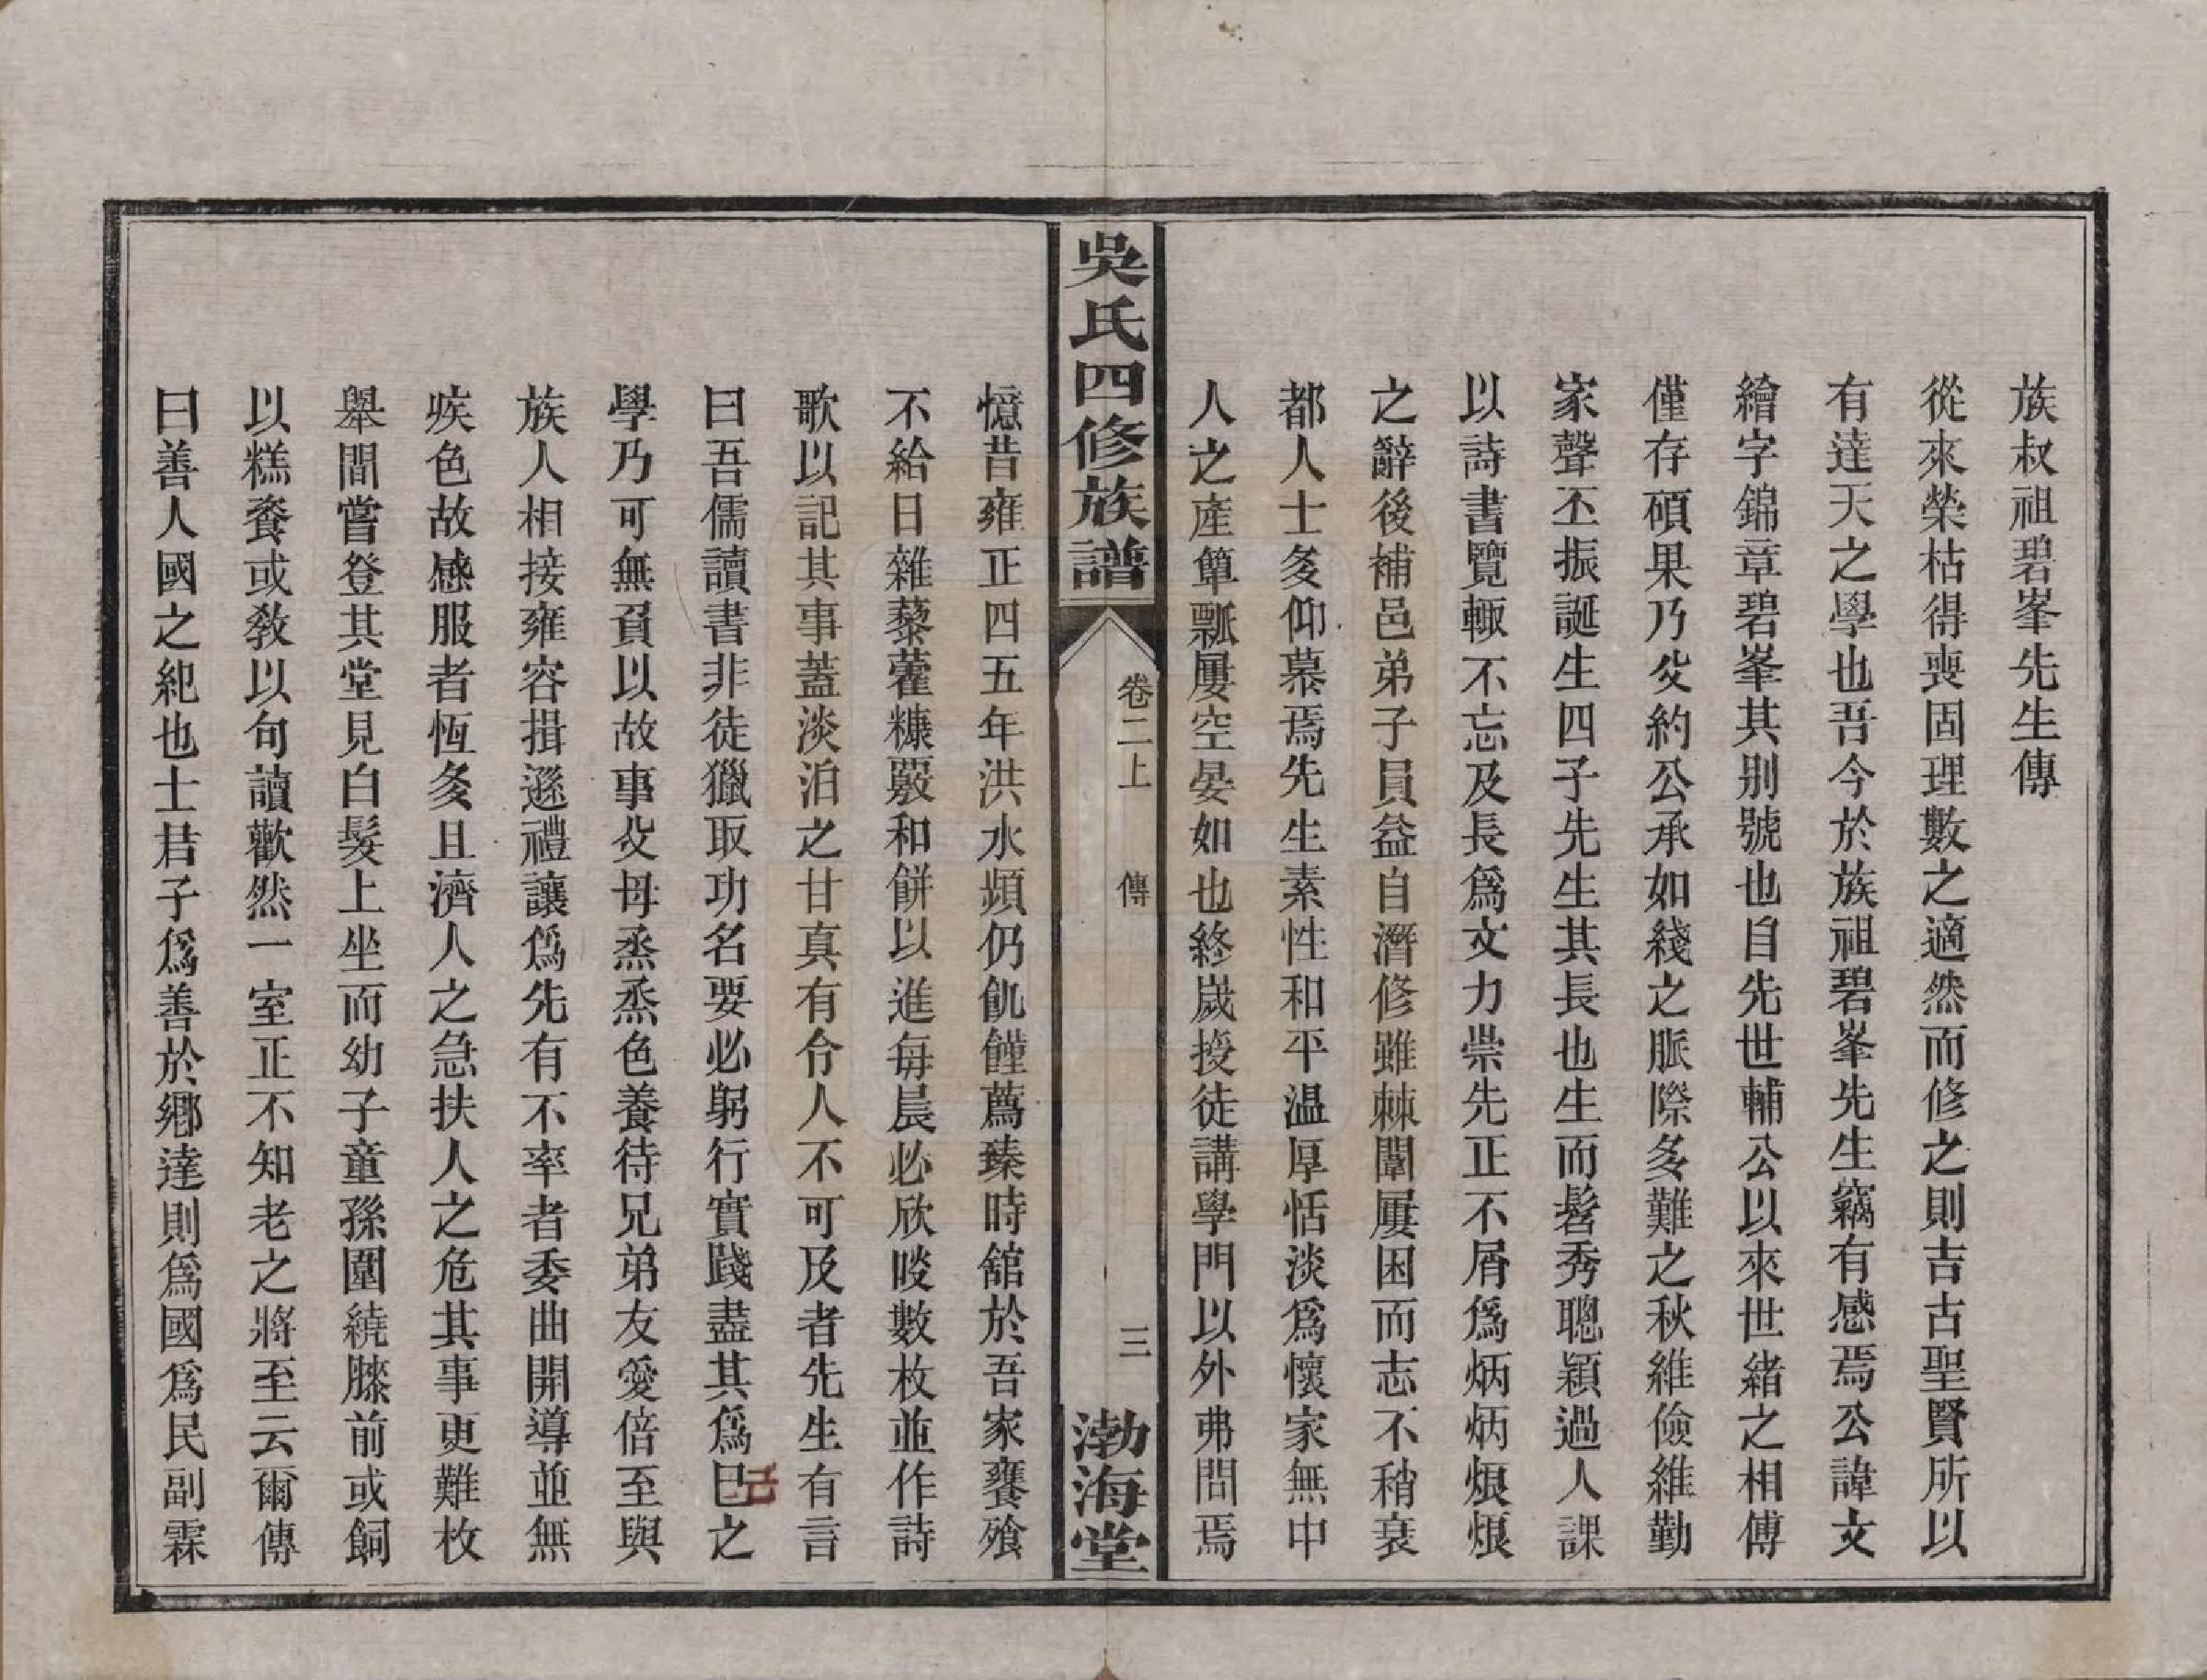 族叔祖碧峯先生傳
從來榮枯得喪固理數之適然而修之則吉古聖賢所以
有達天之學也吾今於族祖碧峯先生竊有感焉公諱文
繪字錦章碧峯其别號也自先世輔公以來世緒之相傅
僅存碩果乃父約公承如綫之脈際多難之秋維儉維勤
家聲丕振誕生四子先生其長也生而髫秀聰穎過人課
以詩書覽輙不忘及長爲文力崇先正不屑爲炳炳烺烺
之辭後補邑弟子員益自濳修雖棘闈屢困而志不稍衰
都人士多仰慕焉先生素性和平温厚恬淡爲懷家無中
人之產簞瓢屢空晏如也終歲授徒講學門以外弗問焉
吳氏四修族譜
卷二上
傳
三
渤海堂
憶昔雍正四五年洪水頻仍飢饉薦臻時舘於吾家饔飱
不給日雜藜藿糠覈和餅以進每晨必欣啖數枚並作詩
歌以記其事蓋淡泊之甘真有令人不可及者先生有言
曰吾儒讀書非徒獵取功名要必躬行實踐盡其爲巳之
己
學乃可無負以故事父母烝烝色養待兄弟友愛倍至與
族人相接雍容揖遜禮讓爲先有不率者委曲開導並無
疾色故感服者恆多且濟人之急扶人之危其事更難枚
舉間嘗登其堂見白髮上坐而幼子童孫圍繞膝前或飼
以糕餈或敎以句讀歡然一室正不知老之將至云爾傳
曰善人國之紀也士君子爲善於鄉達則爲國爲民副霖